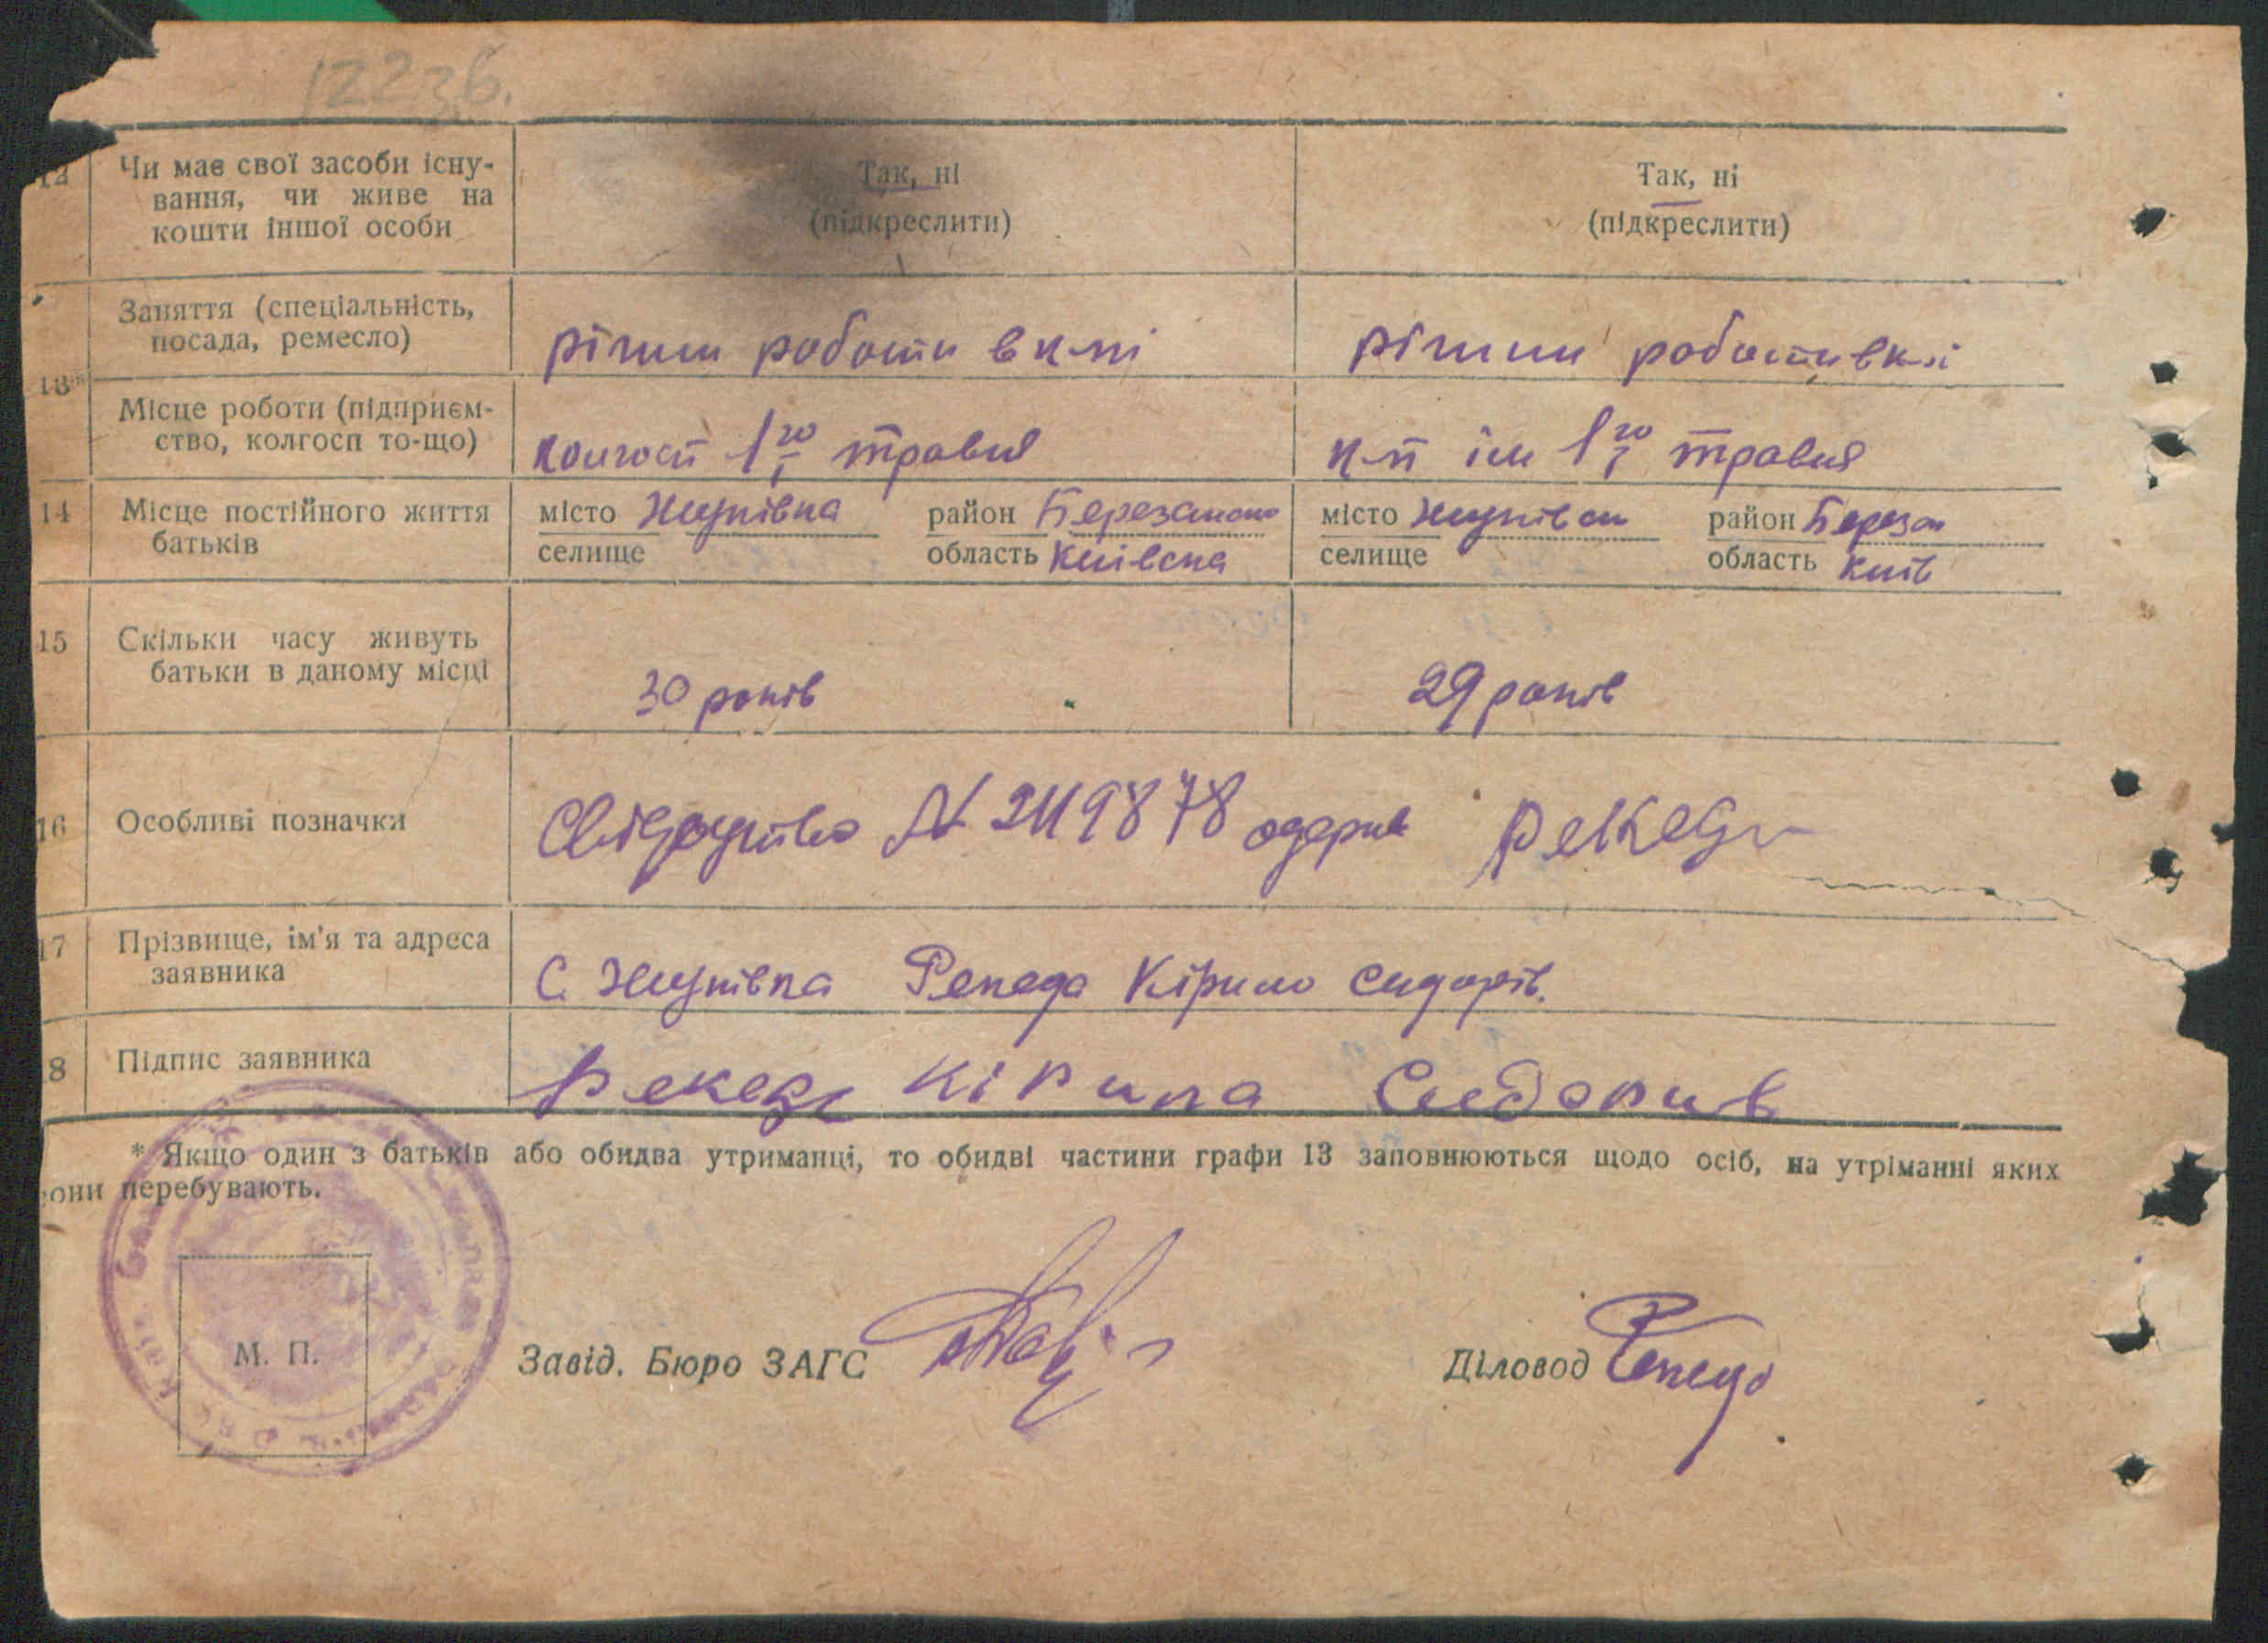 12236.
12 Чи має свої засоби існу-
вання, чи живе на
кошти іншої особи
Так, ні
(підкреслити)
Так, ні
(підкреслити)
Заняття (спеціальність,
посада, ремесло)
різни роботи в к-пі
різни роботи в к-пі
13*
Місце роботи (підприєм-
ство, колгосп то-що)
колгосп 1го травня
к-п ім 1го травня
14 Місце постійного життя
батьків
місто Жуківка район Березансько
селище область Київска
місто Жуківка район Березан
селище область Київ
15 Скільки часу живуть
батьки в даному місці
30 років
29 років
16 Особливі позначки
Свідоцтво № 2119878 одержав Рекеда
17 Прізвище, ім'я та адреса
заявника
С. Жуківка Рекеда Кірило Сидорів.
8 Підпис заявника
Рекеда Кірила Сидорив
* Якщо один з батьків або обидва утриманці, то обидві частини графи 13 заповнюються щодо осіб, на утріманні яких
вони перебувають.
М. П.
Завід. Бюро ЗАГС
Діловод Рекеда